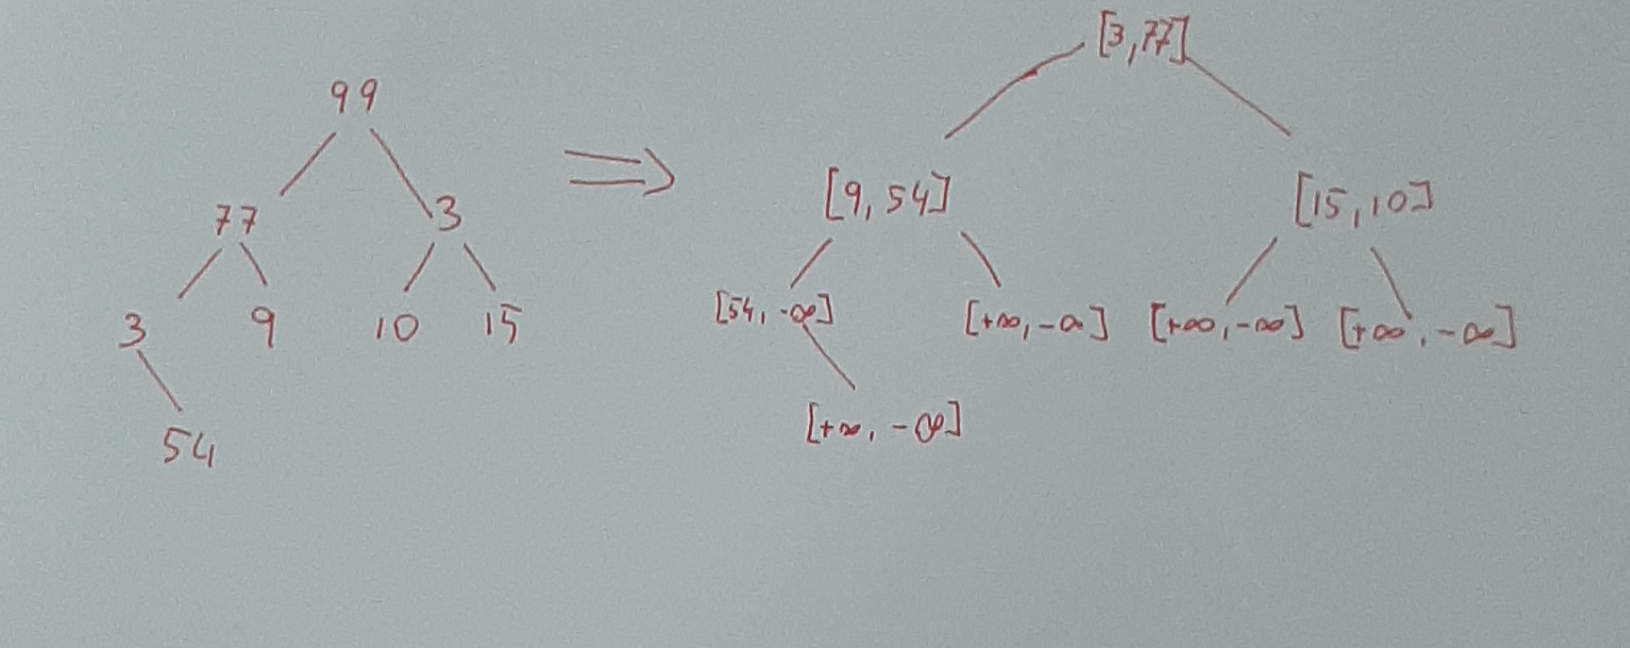 99
77 3
3 9 10 15
54
⇒
[3,77]
[9,54] [15,10]
[54,-∞] [+∞,-∞] [+∞,-∞] [+∞,-∞]
[+∞,-∞]